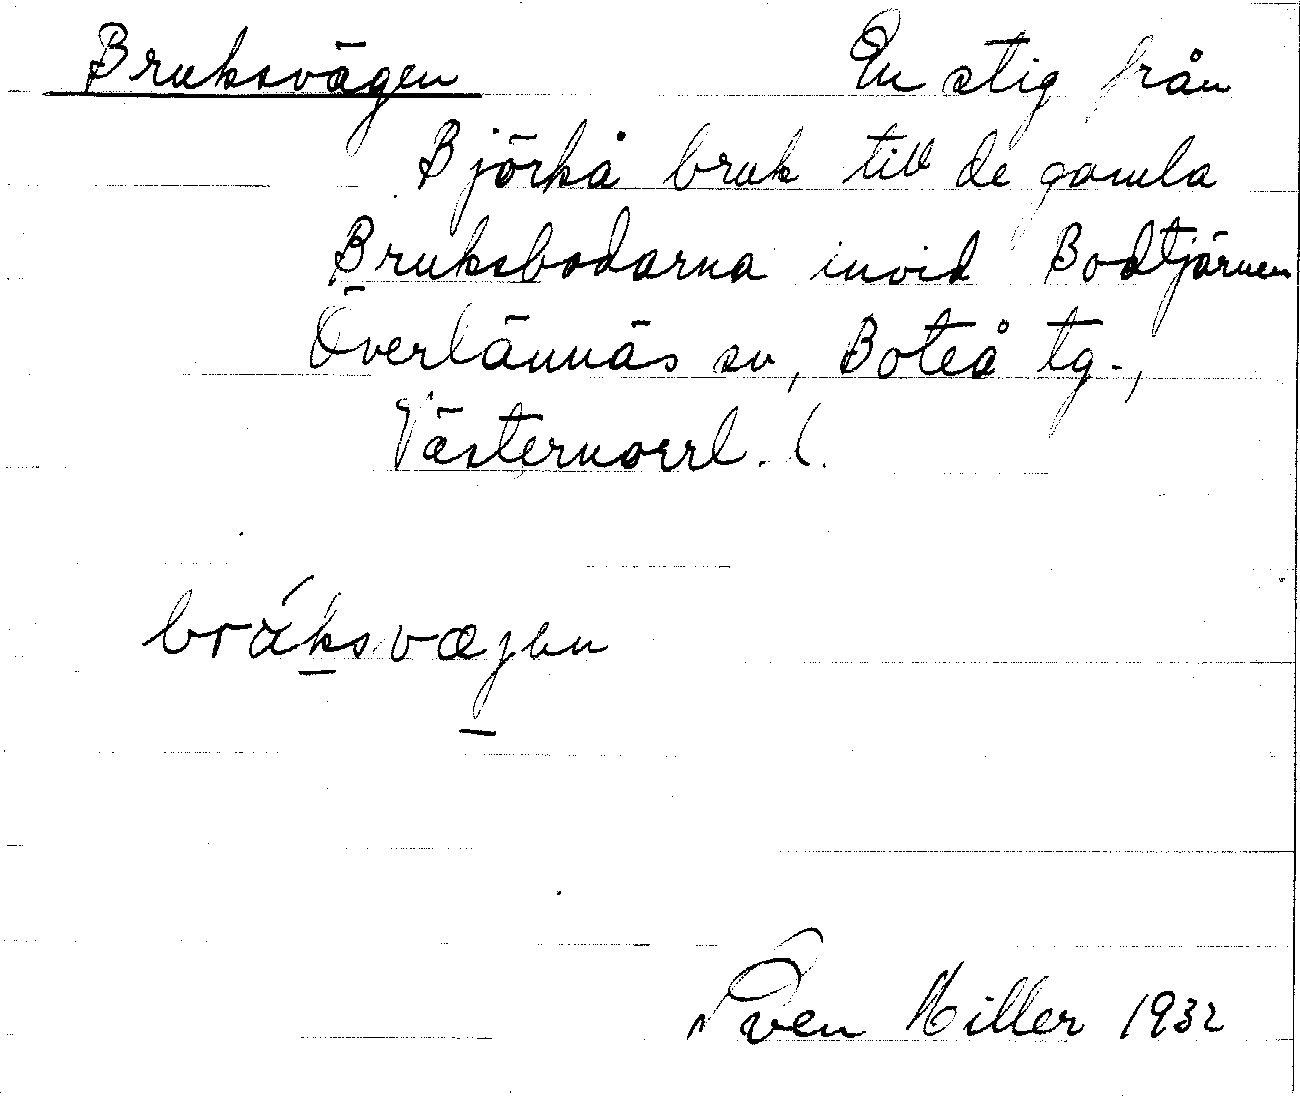 Bruksvägen En stig från
Björkå bruk till de gamla
Bruksbodarna invid Bodtjärnen
Överlännäs sn, Boteå tg.,
Västernorrl. l.
bráksvægen
Sven Hiller 1932